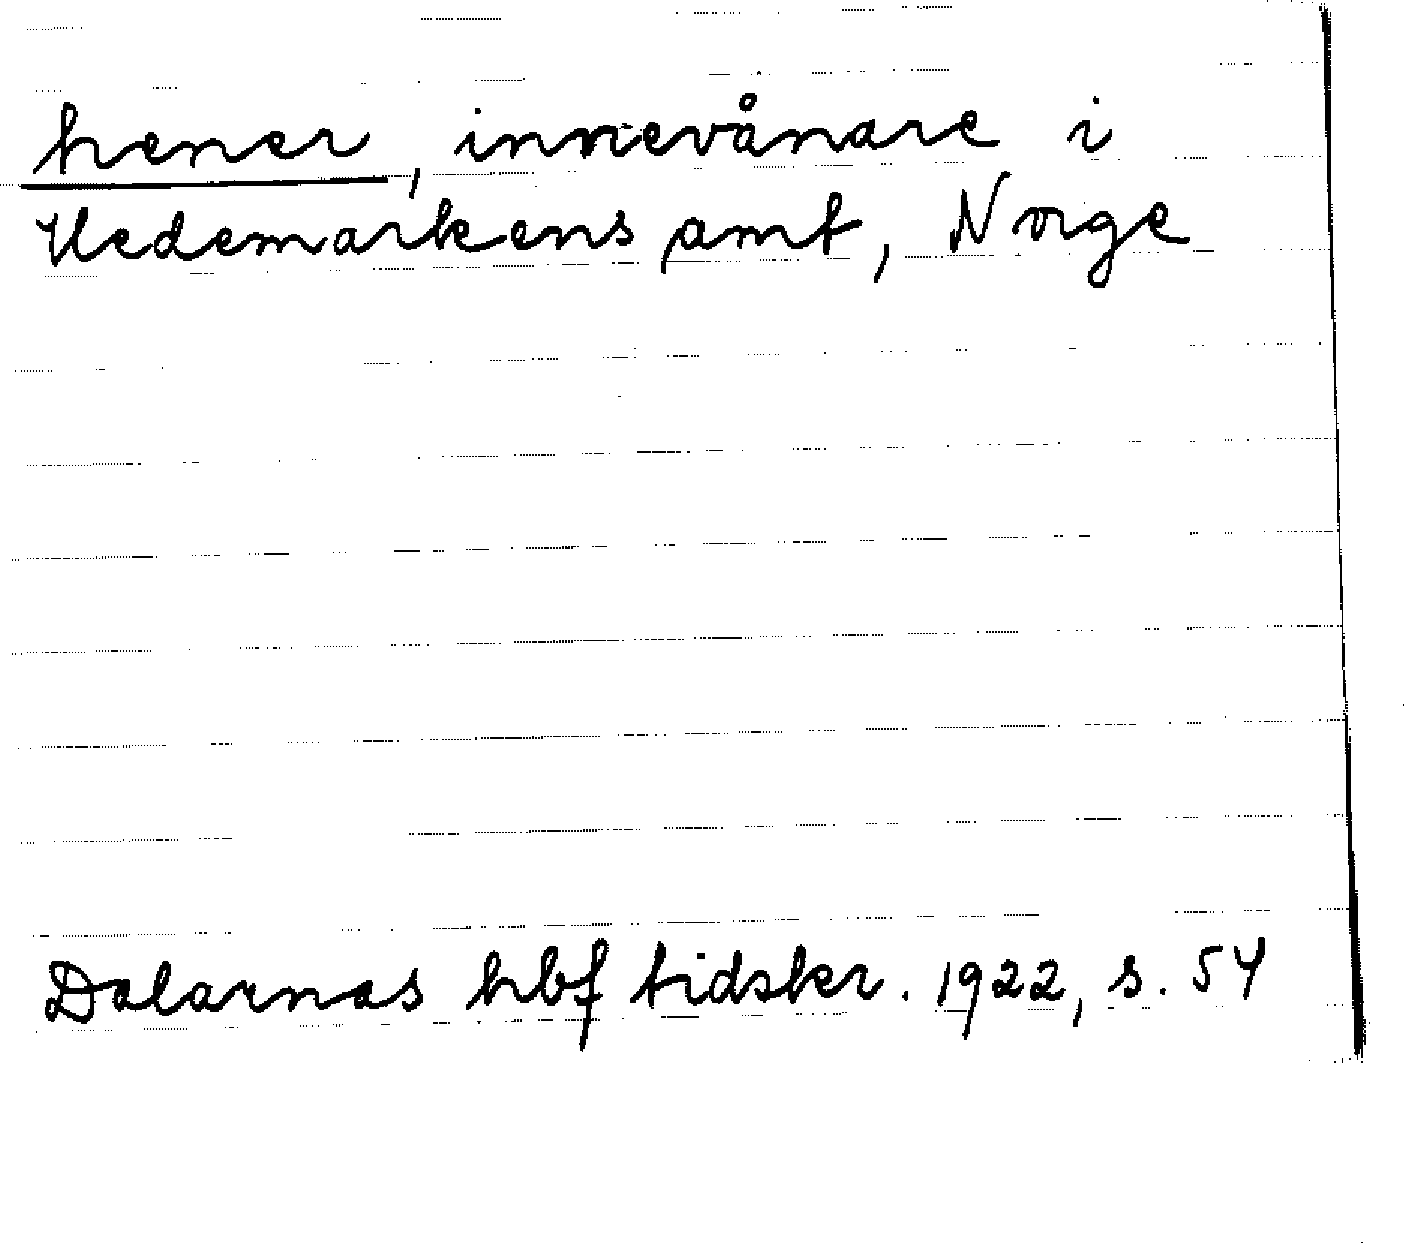 hener, innevånare i
Hedemarkens amt, Norge
Dalarnas hbf tidskr. 1922, s. 54